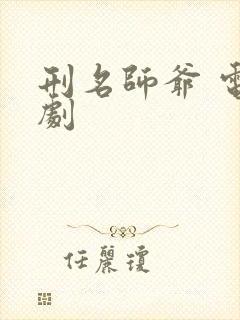 刑名師爺 電
劇
任麗瓊